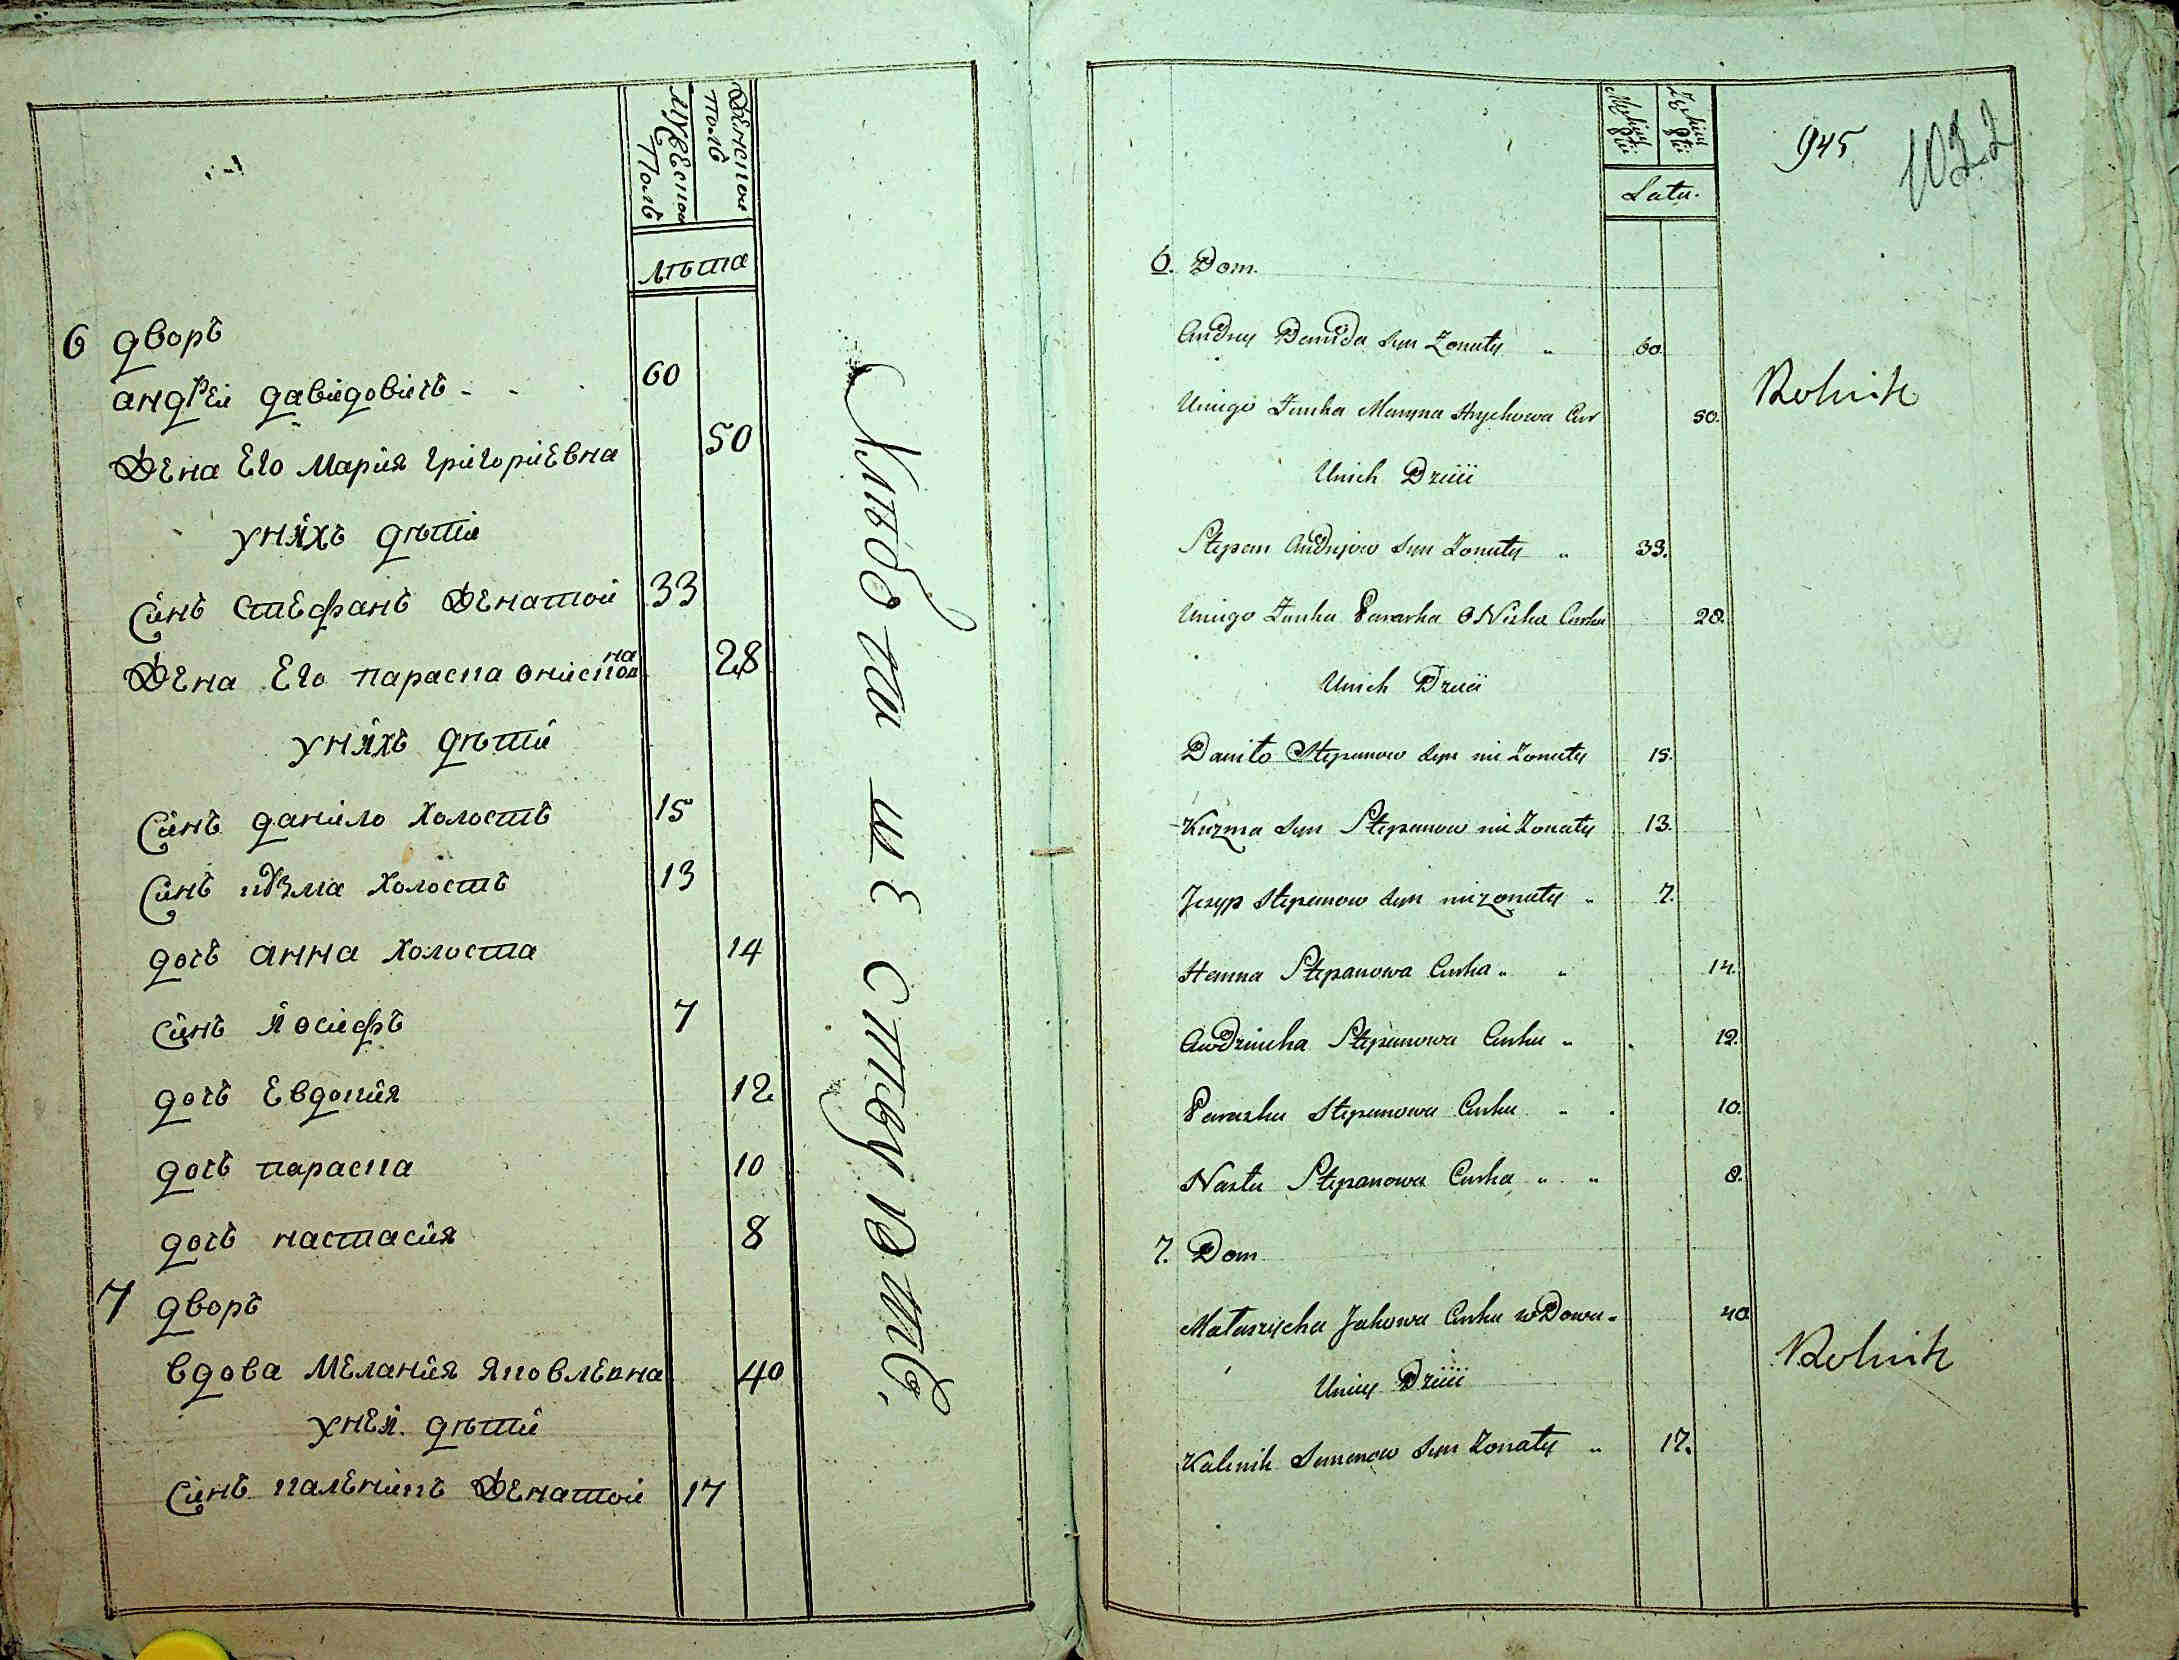 Мужескои Полъ
Женскои Полъ
лѣта
6 дворъ
андреи давидовичъ - - 60
Жена Его Мария григориевна 50
У нихъ дѣти
Синъ стефанъ Женатои 33
Жена Его параска онискова 28
У нихъ дѣти
Синъ данило холостъ 15
Синъ кузма холостъ 13
дочъ анна холоста 14
Синъ Иосифъ 7
дочъ Евдокия 12
дочъ параска 10
дочъ настасия 8
7 дворъ
вдова Мелания Яковлевна 40
У неи дѣти
Синъ каленикъ Женатои 17
Хлѣбопашествуютъ
945
1022
Lata.
6. Dom.
Andrey Demida Syn Zonaty " 60.
Uniego Zunka Maryna Hrychowa Cur 50.
Unich Dzieii
Rolnik
Stepan Andrejow Syn Zonaty " 33.
Uniego Zonka Paraska ONiska Curka 28.
Unich Dzieii
Daniło Stepanow Syn nie Zonaty 15.
Kuzma Syn Stepanow nie Zonaty 13.
Jezyp Stepanow Syn niezonaty " 7.
Hanna Stepanowa Curka " " 14.
Awdziucha Stepanowa Curka " 12.
Paraska Stepanowa Curka " 10.
Nasta Stepanowa Curka " " 8.
7. Dom
Jakowa Curka wDowa 40
Uniey Dzieii
Rolnik
Kalinik Semenow Syn Zonaty " 17.